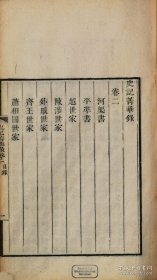 史記菁華錄
卷二
河渠書
平準書
越世家
陳涉世家
外戚世家
齊王世家
蕭相國世家